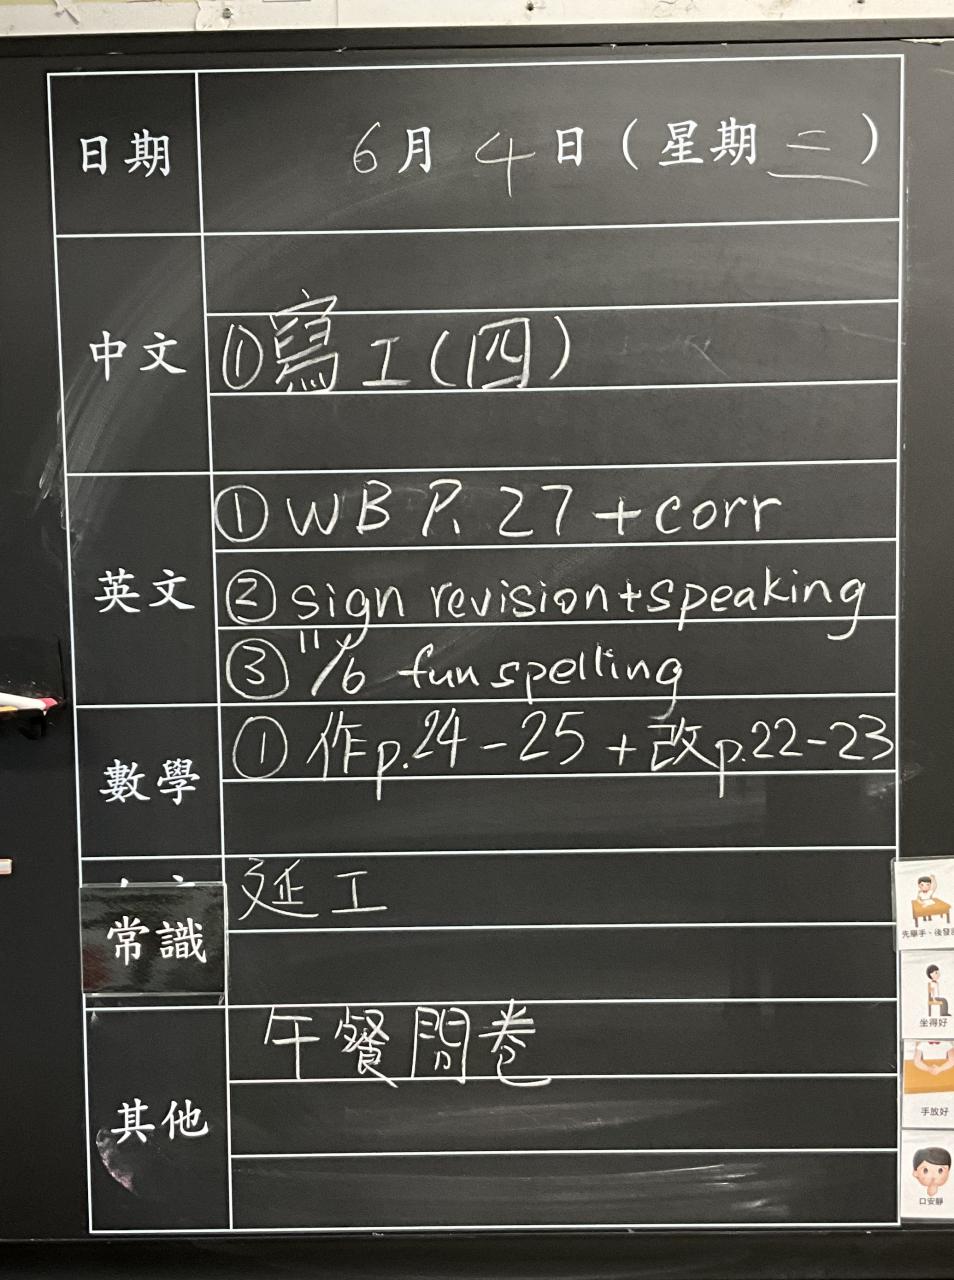 日期 6月4日(星期二)
中文
①寫工(四)
英文
①WB P. 27 + corr
②sign revision+speaking
③11/6 fun spelling
數學
①作p.24-25 + 改p.22-23
常識
延工
其他
午餐問卷
先舉手、後發
坐得好
手放好
口安靜